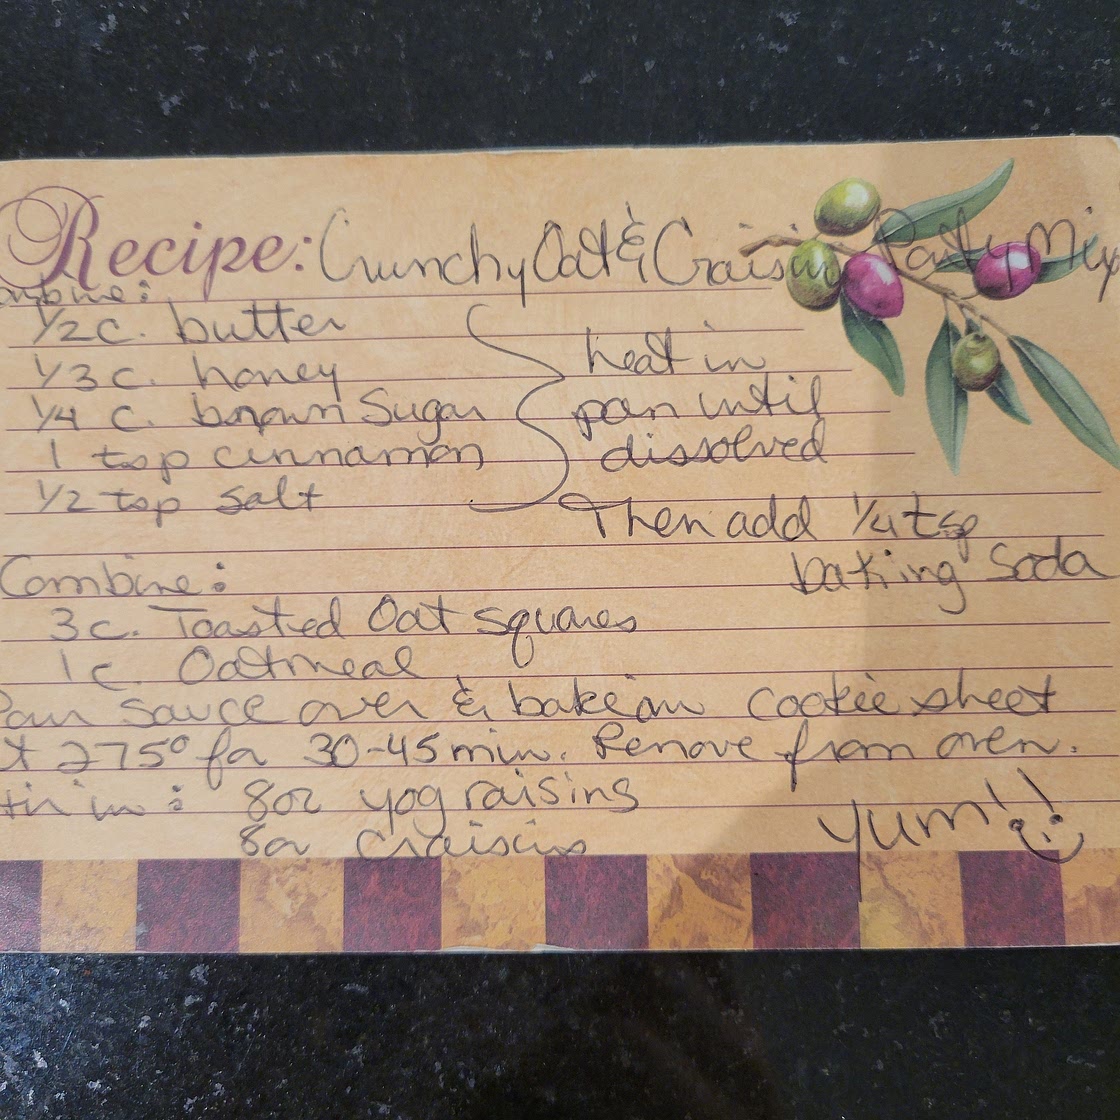 Recipe: Crunchy Oat & Craisin Party Mix
ombine:
1/2 c. butter
1/3 c. honey
1/4 c. brown Sugar
1 tsp cinnamon
1/2 tsp salt
heat in
pan until
dissolved
Then add 1/4 tsp
baking Soda
Combine:
3 c. Toasted Oat squares
1 c. Oatmeal
Pour sauce over & bake on cookie sheet
at 275° for 30-45 min. Remove from oven.
tir in: 8oz yog raisins
8oz craisins
Yum!! :)